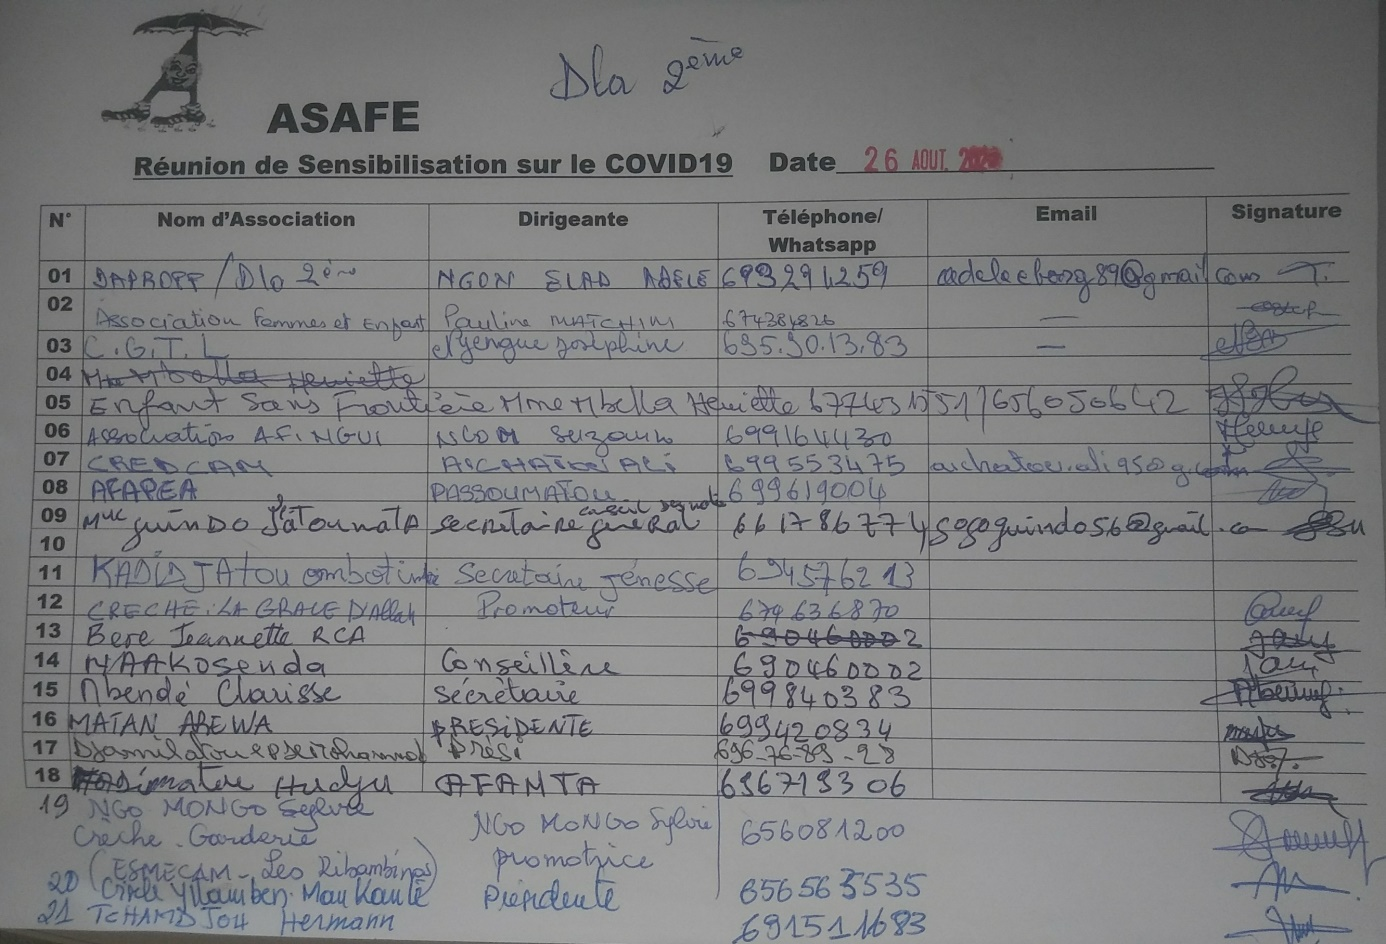 Dla 2ème
ASAFE
Réunion de Sensibilisation sur le COVID19 Date 26 AOUT.
N° Nom d'Association Dirigeante Téléphone/ Whatsapp Email Signature
01 DAPROFF/Dla 2ème NGON ELAD ADELE 693291259 @gmail com
02 Association femmes et Enfant Pauline MATCHIM 674384826 —
03 C.G.T.L Joséphine 695.30.13.83 —
04 Mme Mbella Henriette
05 Enfant Sans Frontière Mme Mbella Henriette 656050642
06 Association AFINGUI NGON 699164430
07 CREDCAM AICHATOU ALI 699553475
08 AFAPEA PASSOUMATOU 699619004
09 GUINDO Fatoumata secretaire general 661786774 gogoguindo56@gmail.co
10
11 KADIDJAtou Secretaire jenesse 694576213
12 CRECHE. LA GRACE D'Allah Promoteur 679636870
13 Bere Jeannette RCA 690460002
14 NAAKOSENDA Conseillère 690460002
15 Mbendé Clarisse Sécrètaire 699840383
16 MATAN AREWA PRESIDENTE 699420834
17 Présι 696-76-89-28
18 Hadja AFAMTA 696719306
19 NGO MONGO Sylvie
Crèche. Garderie NGO MONGO Sylvie 656081200
(ESMECAM - Les Ribambines) promotrice
20 Présidente 656565535
21 TCHAMDJOU Hermann 691511683